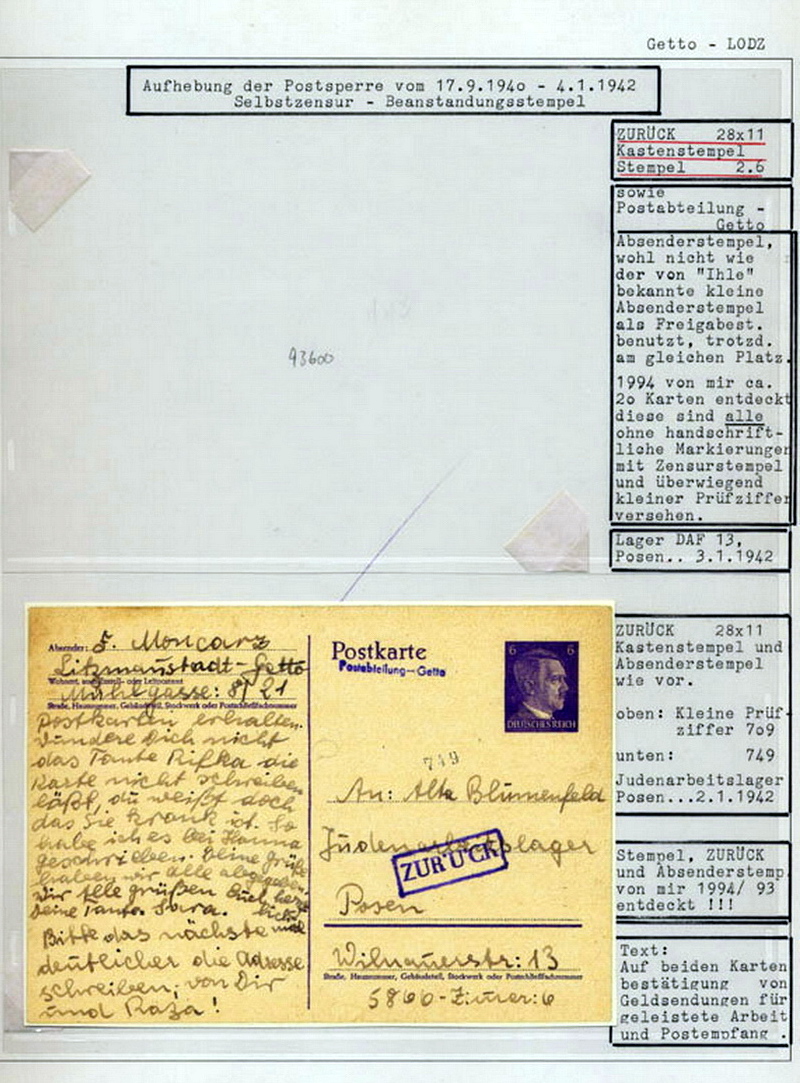 Getto - LODZ
Aufhebung der Postsperre vom 17.9.194o - 4.1.1942
Selbstzensur - Beanstandungsstempel
ZURÜCK 28x11
Kastenstempel
Stempel 2.6
sowie
Postabteilung -
Getto
Absenderstempel,
wohl nicht wie
der von "Ihle"
bekannte kleine
Absenderstempel
als Freigabest.
benutzt, trotzd.
am gleichen Platz.
1994 von mir ca.
2o Karten entdeckt
diese sind alle
ohne handschrift-
liche Markierungen
mit Zensurstempel
und überwiegend
kleiner Prüfziffer
versehen.
93600
Lager DAF 13,
Posen.. 3.1.1942
ZURÜCK 28x11
Kastenstempel und
Absenderstempel
wie vor.
oben: Kleine Prüf-
ziffer 7o9
unten: 749
Judenarbeitslager
Posen...2.1.1942
Stempel, ZURÜCK
und Absenderstemp.
von mir 1994/ 93
entdeckt !!!
Text:
Auf beiden Karten
bestätigung von
Geldsendungen für
geleistete Arbeit
und Postempfang .
Absender: F. Moncarz
Litzmanstadt-Getto
Wohnort, auch Zustell- oder Leitpostamt
Mühlgasse: 8/21
Straße, Hausnummer, Gebäudeteil, Stockwerk oder Postschließfachnummer
postkarten erhalten.
Wundere Dich nicht
das Tante Rifka die
Karte nicht schreiben
läßt, du weißt doch
das Sie krank ist. So
habe ich es bei Hanna
geschrieben. Deine Grüße
haben wir alle abgegeben.
Wir alle grüßen Euch
Deine Tante Sara.
Bitte das nächste mal
deutlicher die Adresse
schreiben, von Dir
und Raza!
Postkarte
Postabteilung-Getto
6 6
DEUTSCHES REICH
749
An: Alta Blumenfeld
Judenarbeitslager
ZURÜCK
Posen
Wilnauerstr: 13
Straße, Hausnummer, Gebäudeteil, Stockwerk oder Postschließfachnummer
5860-Zimer: 6